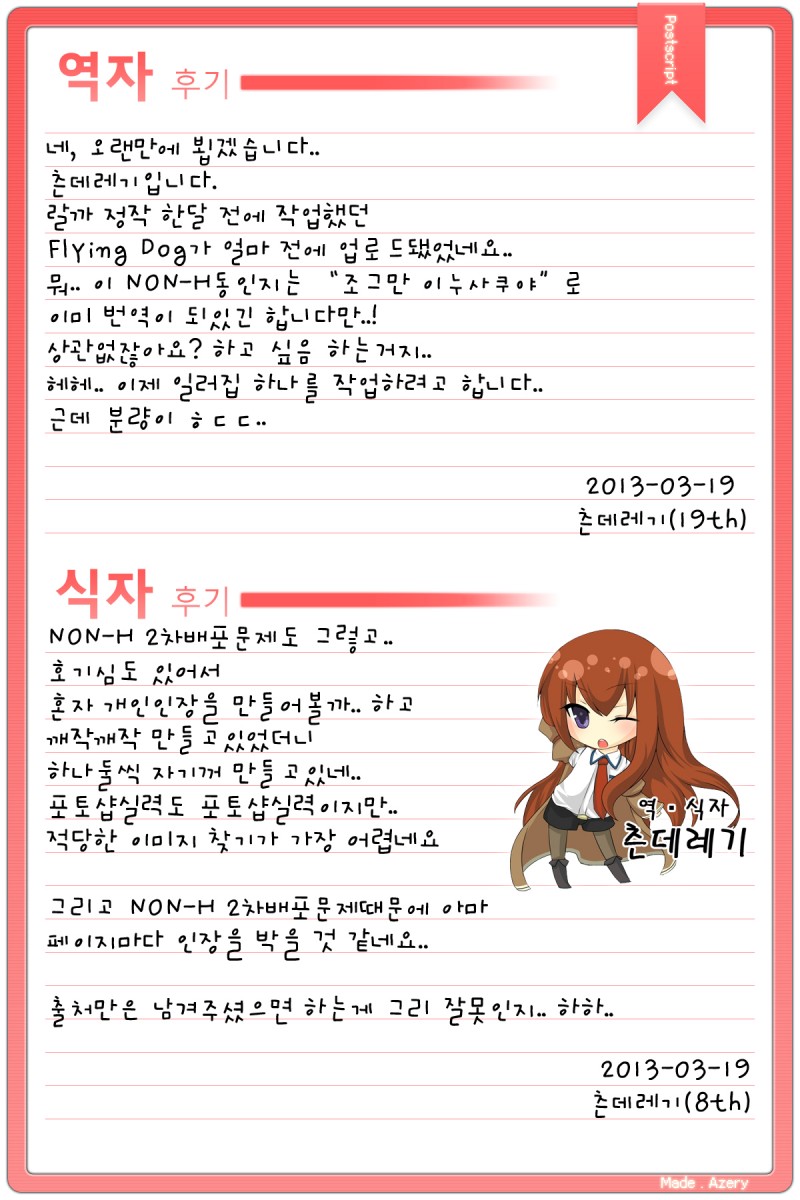 Postscript
역자 후기
네, 오랜만에 뵙겠습니다..
츤데레기입니다.
랄까 정작 한달 전에 작업했던
Flying Dog가 얼마 전에 업로드됐었네요..
뭐.. 이 NON-H동인지는 "조그만 이누사쿠야"로
이미 번역이 되있긴 합니다만..!
상관없잖아요? 하고 싶음 하는거지..
헤헤.. 이제 일러집 하나를 작업하려고 합니다..
근데 분량이 ㅎㄷㄷ..
2013-03-19
츤데레기(19th)
식자 후기
NON-H 2차배포문제도 그렇고..
호기심도 있어서
혼자 개인인장을 만들어볼까.. 하고
깨작깨작 만들고있었더니
하나둘씩 자기꺼 만들고있네..
포토샵실력도 포토샵실력이지만..
적당한 이미지 찾기가 가장 어렵네요
역·식자
츤데레기
그리고 NON-H 2차배포문제때문에 아마
페이지마다 인장을 박을 것 같네요..
출처만은 남겨주셨으면 하는게 그리 잘못인지.. 하하..
2013-03-19
츤데레기(8th)
Made . Azery